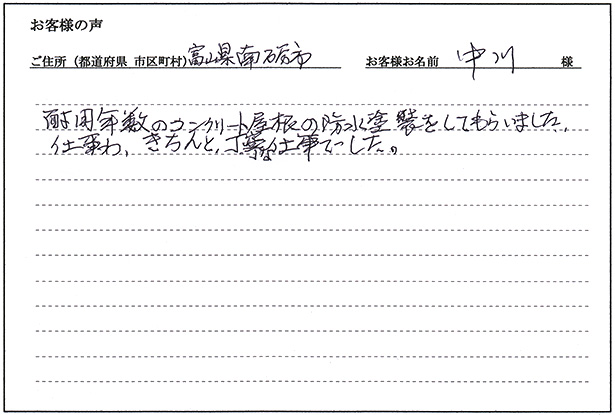 お客様の声
ご住所 (都道府県 市区町村) 富山県南砺市 お客様お名前 中川 様
耐用年数のコンクリート屋根の防水塗装をしてもらいました。
仕事わ、きちんと、丁寧な仕事でした。